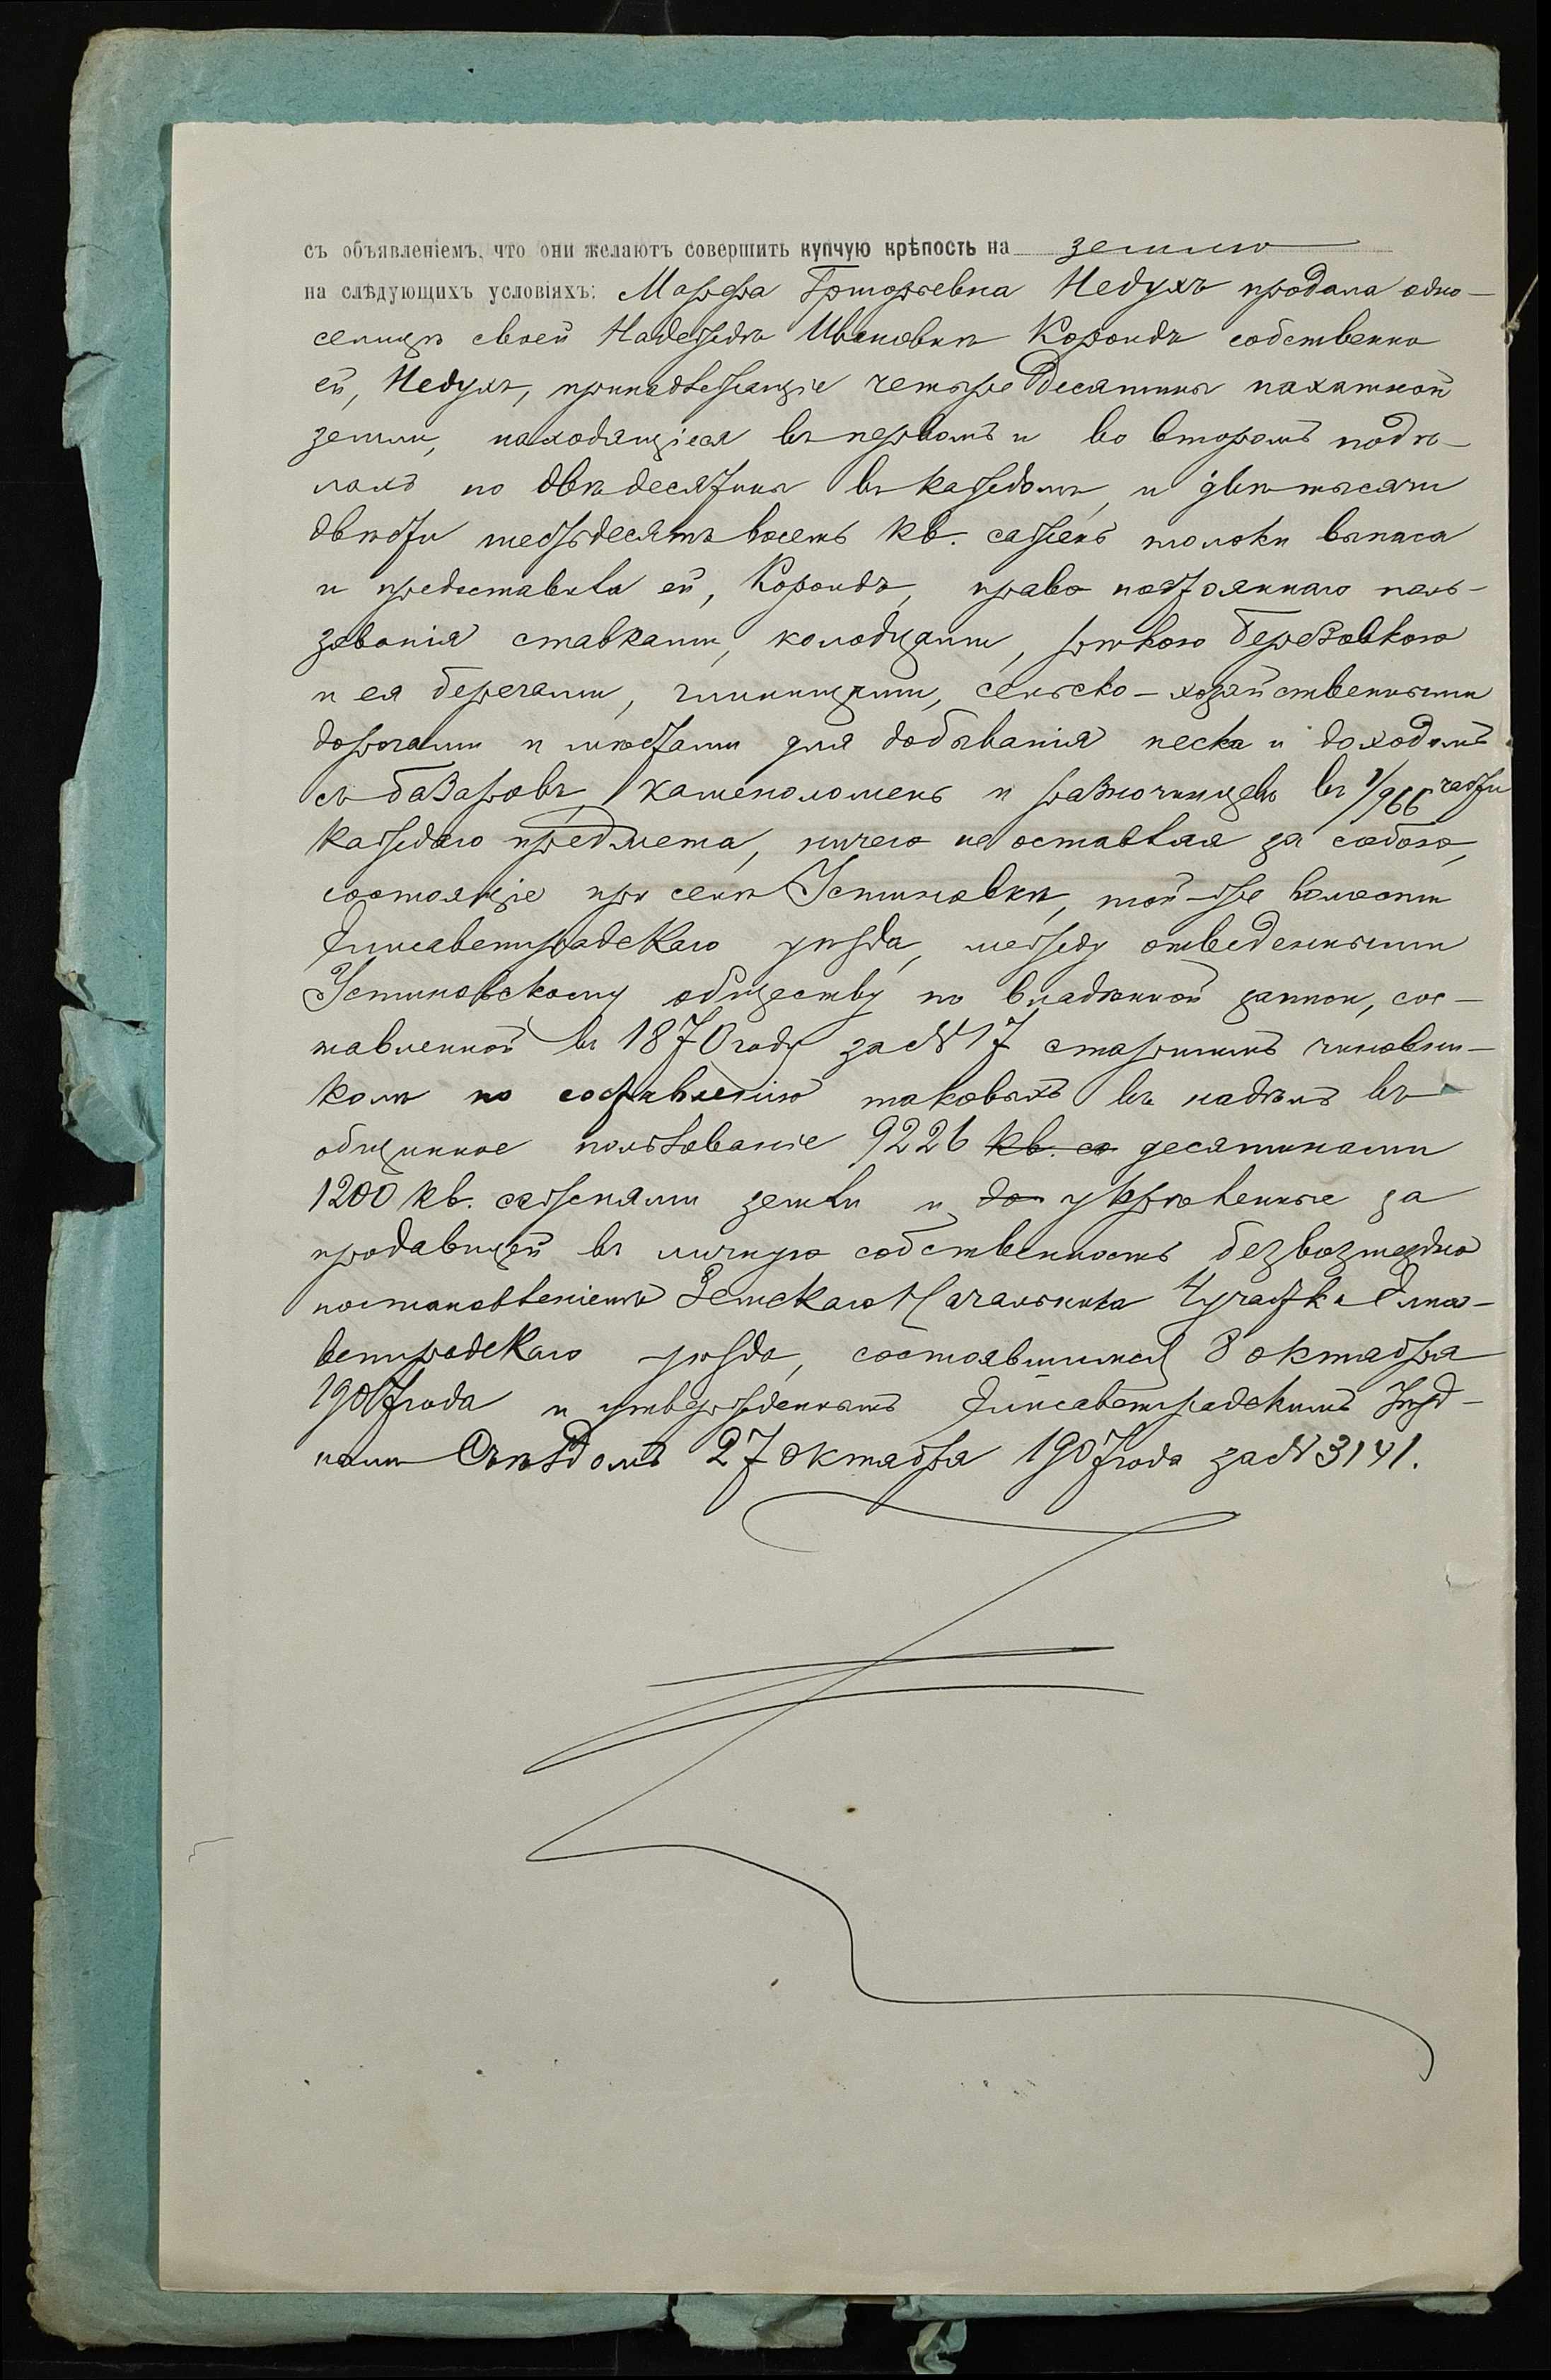 съ объявленіемъ, что они желаютъ совершить купчую крѣпость на землю
на слѣдующихъ условіяхъ: Марфа Григорьевна Недухъ продала одно-
селицѣ своей Надеждѣ Ивановнѣ Короидъ собственно
ей, Недухъ, принадлежащіе четыре десятины пахатной
земли, находящіеся въ первомъ и во второмъ подѣ-
лахъ по двѣ десятины въ каждомъ, и двѣ тысячи
двѣсти шестьдесятъ восемь кв. сажень толоки выпаса
и предоставила ей, Короидъ, право постояннаго поль-
зованія ставками, колодцами, рѣкою Березовкою
и ея берегами, глинищами, сельско-хозяйственными
дорогами и мѣстами для добыванія песка и доходомъ
съ базаровъ, каменоломень и разночинцевъ въ 1/966 части
каждаго предмета, ничего не оставляя за собою,
состоящіе при селѣ Устиновкѣ, той-же волости
Елисаветградскаго уѣзда, между отведенными
Устиновскому обществу по владѣнной записи, сос-
тавленной въ 1870 году за № 17 старшимъ чиновни-
комъ по составленію таковыхъ въ надѣлъ въ
общинное пользованіе 9226 кв. са десятинами
1200 кв. саженями земли и до укрѣпленные за
продавицей въ личную собственность безвозмездно
постановленіемъ Земскаго Начальника 4 участка Елиса-
ветградскаго уѣзда, состоявшимся 8 октября
1907 года и утвержденнымъ Елисаветградскимъ Уѣзд-
нымъ Съѣздомъ 27 октября 1907 года за № 3141.